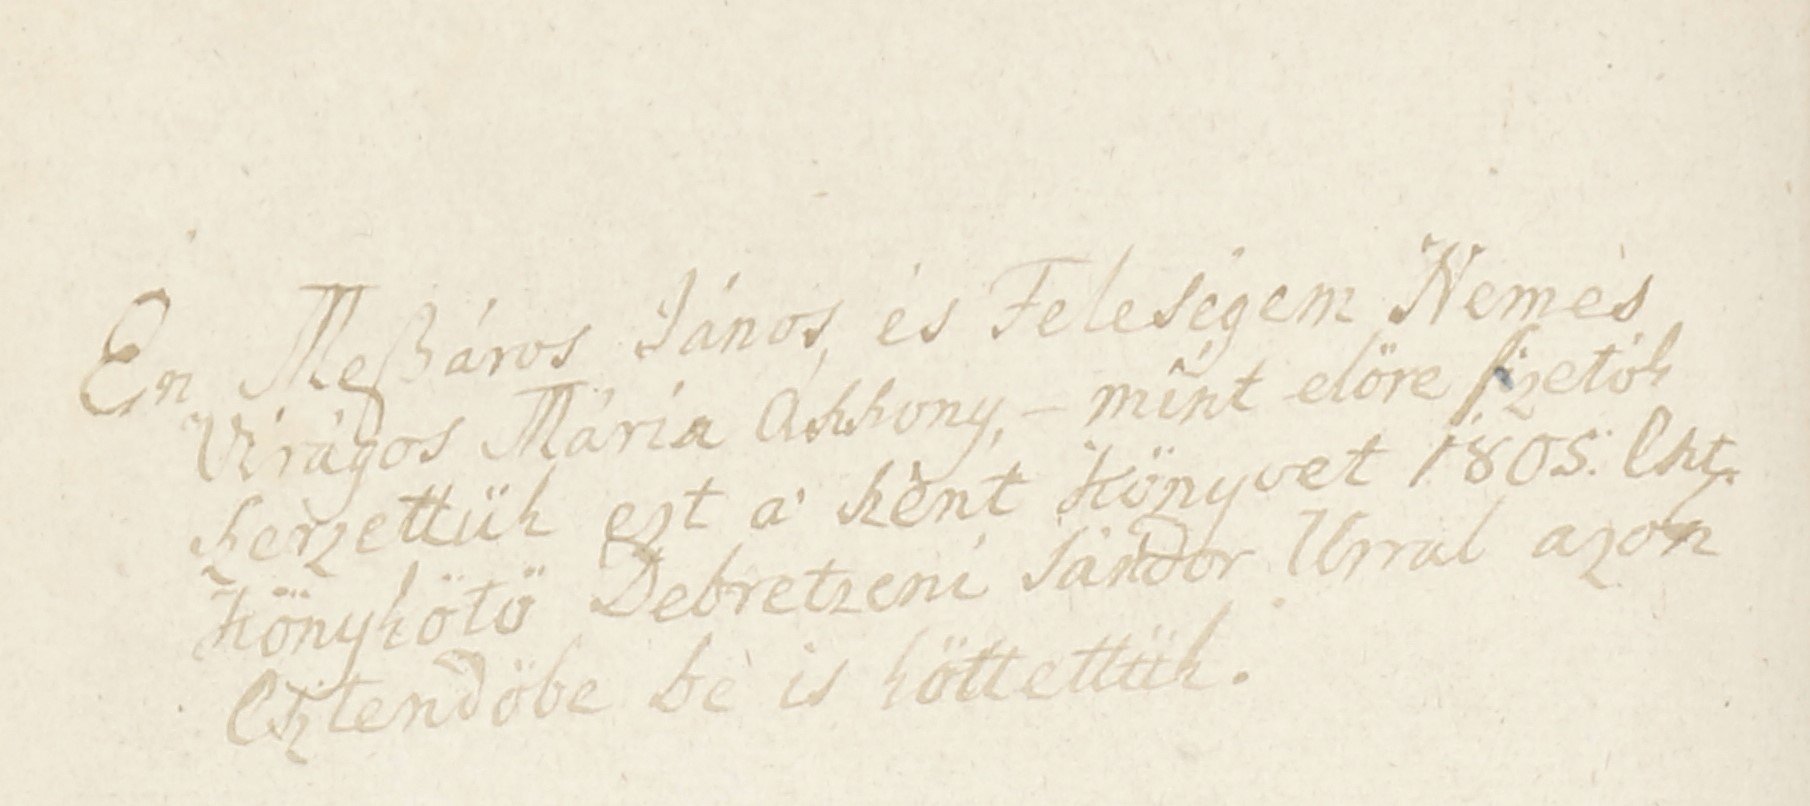 En Meßáros János, és Feleségem Nemes
Virágos Mária Aszszony, – mint elöre fizetök
szerzettük ezt a' szent Könyvet 1805. Eszt.
Könykötö Debretzeni Sándor Urral azon
Esztendöbe bé is köttettük.